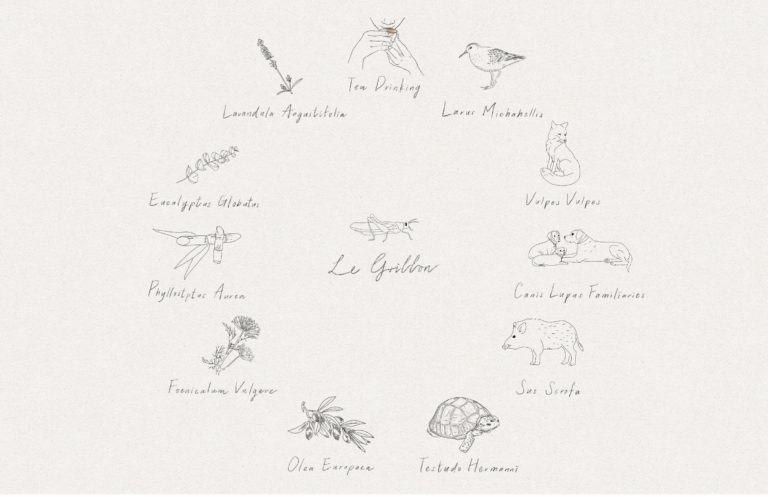 Tea Drinking
Lavandula Angustifolia
Larus Michahellis
Eucalyptus Globulus
Vulpes Vulpes
Le Grillon
Phyllostptus Aurea
Canis Lupus Familiaries
Foeniculum Vulgare
Sus Scrofa
Olea Europaea
Testudo Hermanni